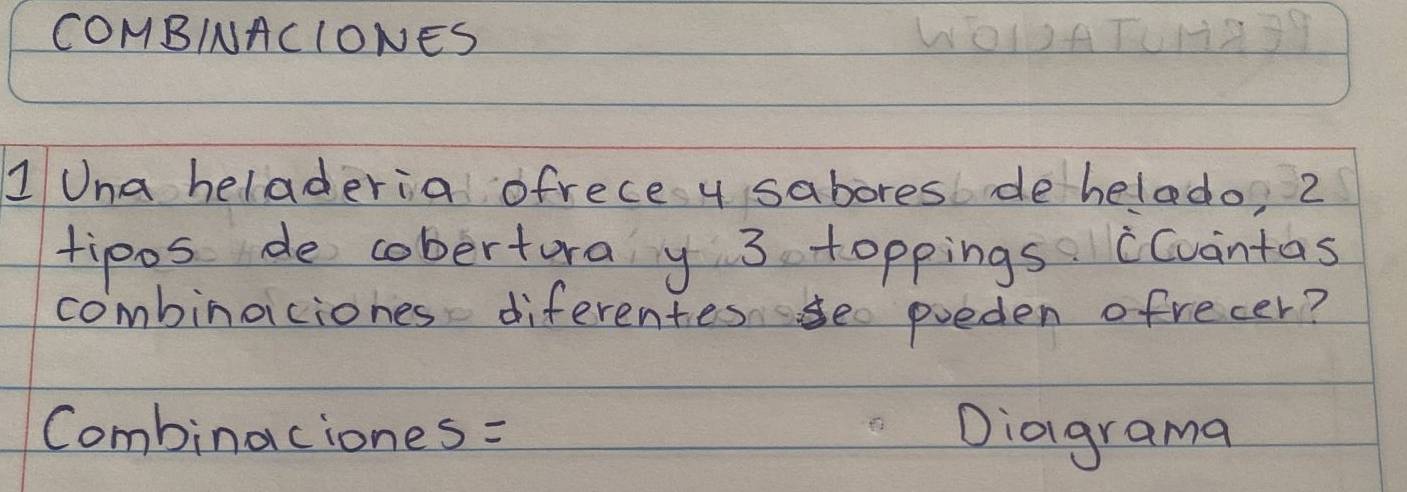 COMBINACIONES
PERMUTACION
1 Una heladeria ofrece 4 sabores de helado, 2
tipos de cobertura y 3 toppings. ¿Cuántas
combinaciones diferentes se pueden ofrecer?
Combinaciones =
Diagrama